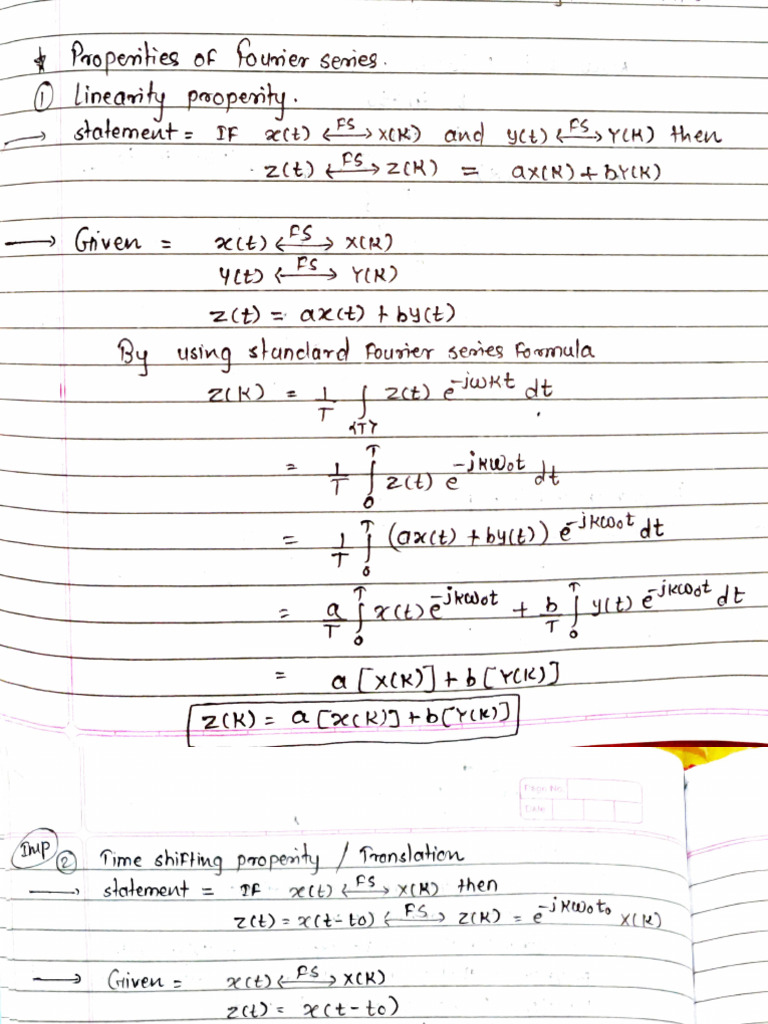 * Properities of Fourier series.
① Linearity properity.
→ statement = IF x(t) <-FS-> X(K) and y(t) <-FS-> Y(K) then
z(t) <-FS-> Z(K) = aX(K) + bY(K)
→ Given = x(t) <-FS-> X(K)
y(t) <-FS-> Y(K)
z(t) = ax(t) + by(t)
By using standard Fourier series Formula
Z(K) = 1/T ∫<T> z(t) e^-jωKt dt
= 1/T ∫₀ᵀ z(t) e^-jKω₀t dt
= 1/T ∫₀ᵀ (ax(t) + by(t)) e^-jKω₀t dt
= a/T ∫₀ᵀ x(t) e^-jKω₀t + b/T ∫₀ᵀ y(t) e^-jKω₀t dt
= a [X(K)] + b [Y(K)]
Z(K) = a [X(K)] + b [Y(K)]
Page No.
Date
IMP ② Time shifting properity / Translation
→ statement = IF x(t) <-FS-> X(K) then
z(t) = x(t-to) <-FS-> Z(K) = e^-jKω₀t₀ X(K)
→ Given = x(t) <-FS-> X(K)
z(t) = x(t-to)